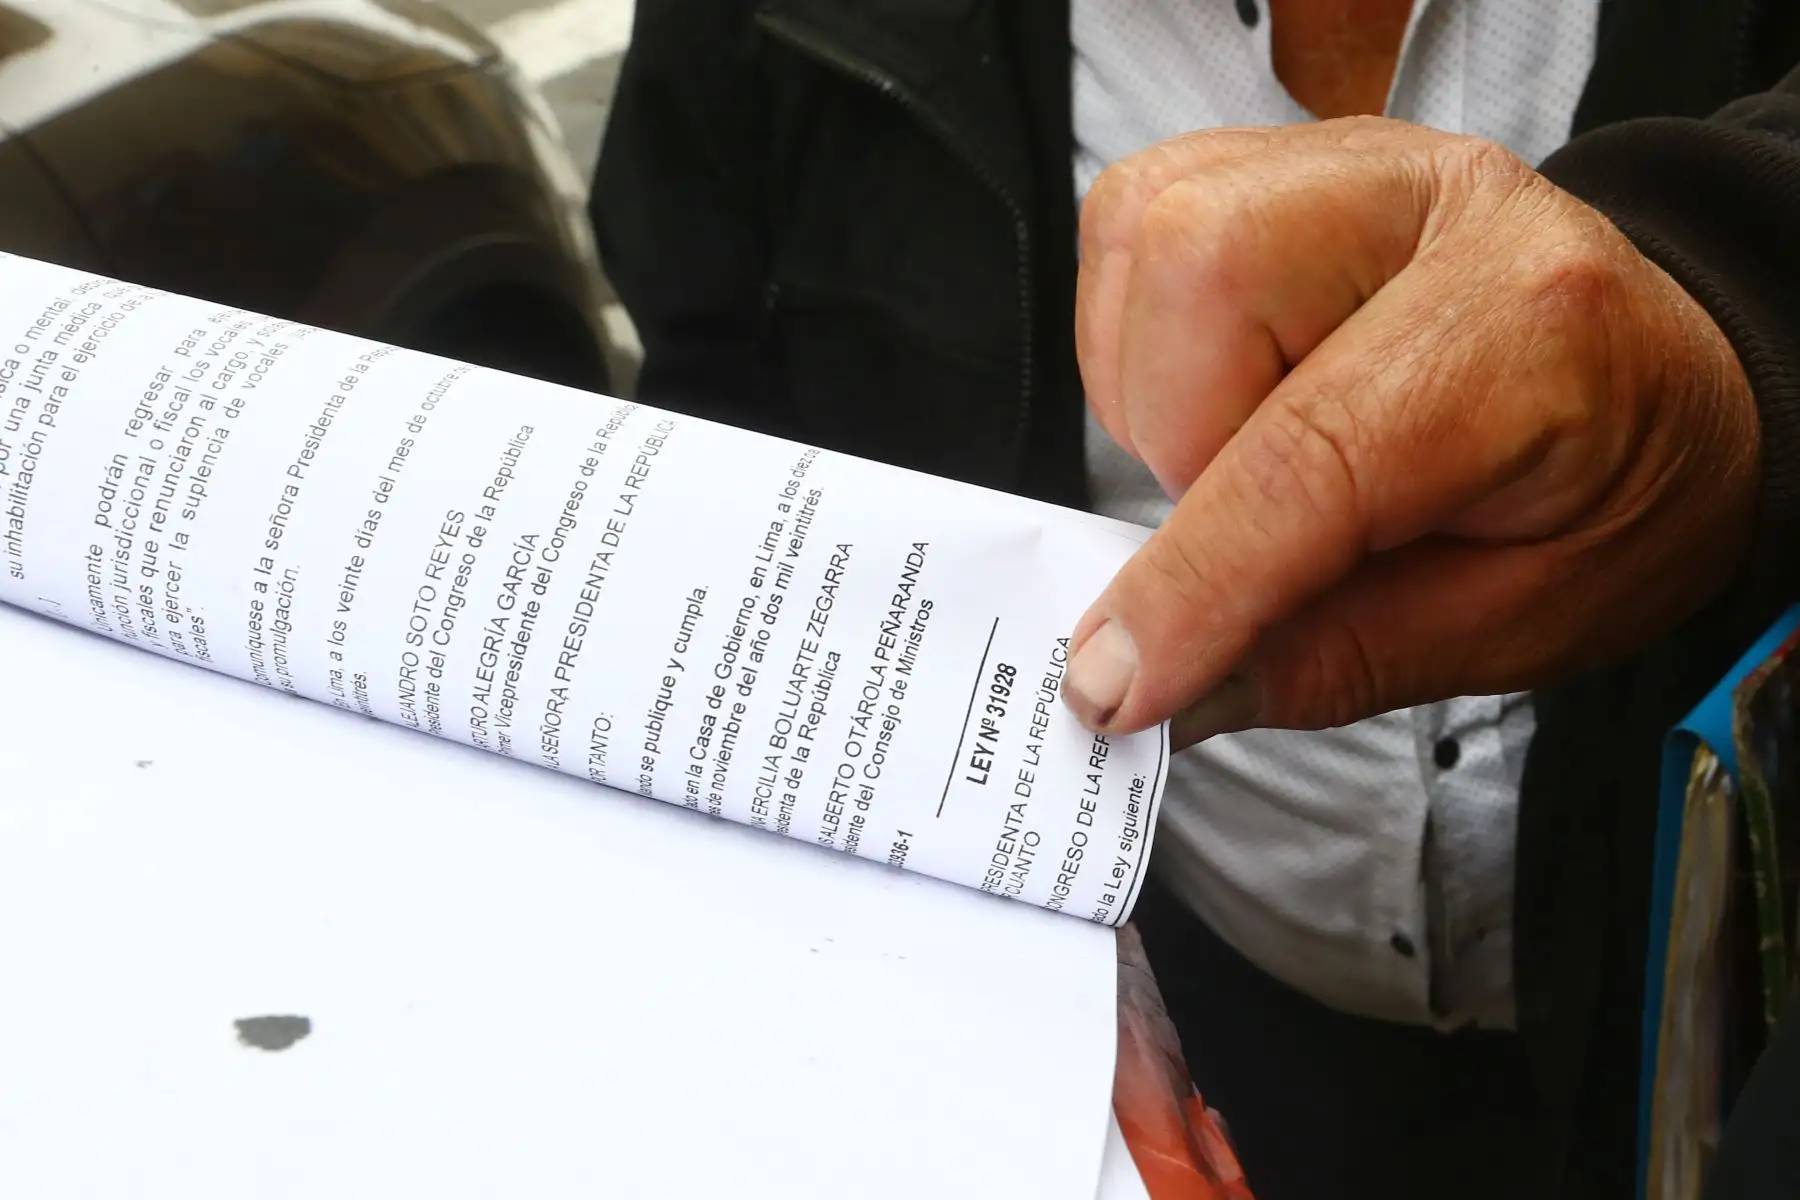 sica o mental, debid
por una junta médica que
su inhabilitación para el ejercicio de la
[...]
Únicamente podrán regresar para ejerce
función jurisdiccional o fiscal los vocales
y fiscales que renunciaron al cargo, y
para ejercer la suplencia de vocales
fiscales".
omuníquese a la señora Presidenta de la Repú
su promulgación.
En Lima, a los veinte días del mes de octubre de
veintitrés.
LEJANDRO SOTO REYES
residente del Congreso de la República
RTURO ALEGRÍA GARCÍA
rimer Vicepresidente del Congreso de la República
LA SEÑORA PRESIDENTA DE LA REPÚBLICA
OR TANTO:
ando se publique y cumpla.
ado en la Casa de Gobierno, en Lima, a los diez
es de noviembre del año dos mil veintitrés.
NA ERCILIA BOLUARTE ZEGARRA
esidenta de la República
IS ALBERTO OTÁROLA PEÑARANDA
esidente del Consejo de Ministros
0936-1
LEY Nº 31928
PRESIDENTA DE LA REPÚBLICA
R CUANTO
CONGRESO DE LA REP
ado la Ley siguiente: